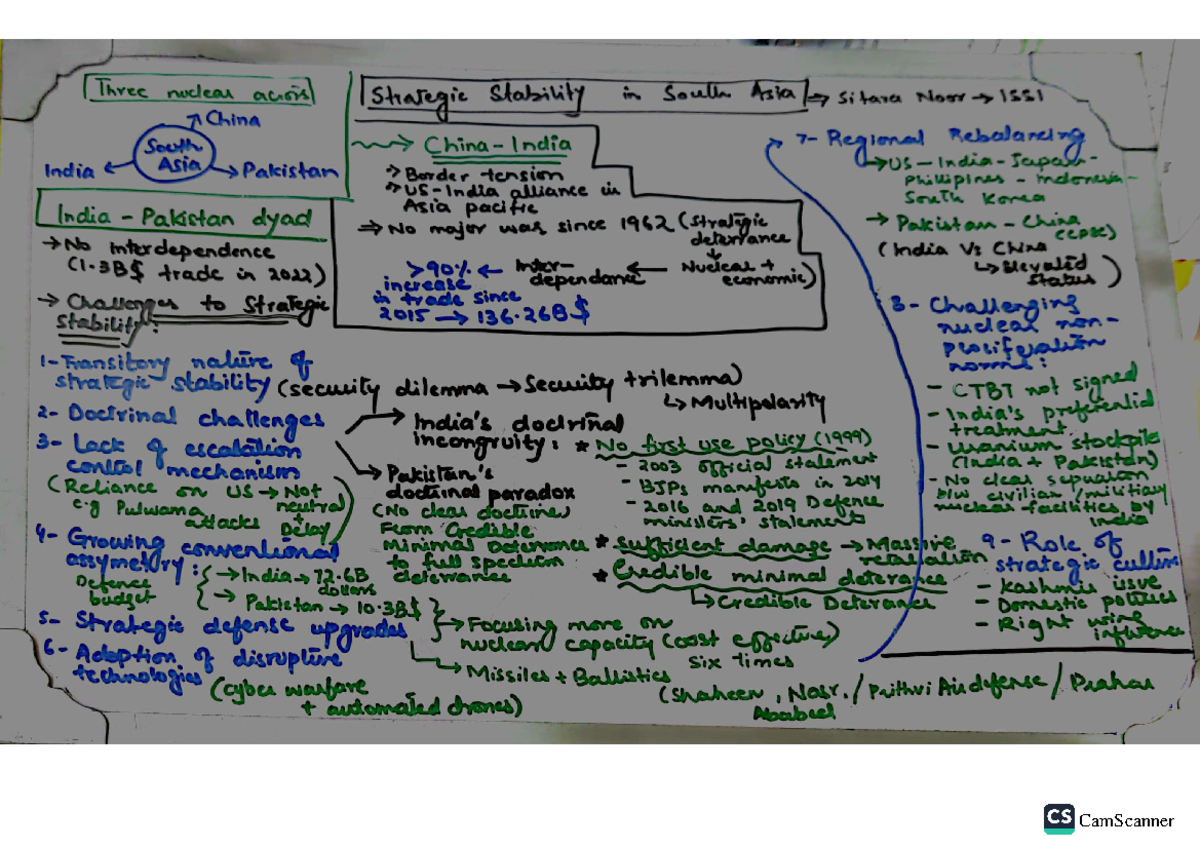 Three nuclear actors
China
South Asia
India
Pakistan
Strategic Stability in South Asia → Sitara Noor → ISSI
China - India
→ Border tension
→ US-India alliance in
Asia pacific
→ No major war since 1962 (Strategic
deterrance
↓
Nuclear + economic)
← Inter-
dependance
← >90%
increase
in trade since
2015 → 136.26B$
India - Pakistan dyad
→ No Interdependence
(1.3B$ trade in 2022)
→ Challenges to Strategic
Stability:
1- Transitory nature of
strategic stability (security dilemma → Security trilemma)
↳ Multipolarity
2- Doctrinal challenges
3- Lack of escalation
control mechanism
(Reliance on US → Not
neutral
+
Delay)
e.g Pulwama
attacks
4- Growing conventional
assymetry:
Defence
budget
→ India → 72.6B
dollars
→ Pakistan → 10.3B$
5- Strategic defense upgrades
6- Adoption of disruptive
technologies (cyber warfare
+ automated drones)
→ India's doctrinal
incongruity:
* No first use policy (1999)
- 2003 official statement
- BJPs manifests in 2014
- 2016 and 2019 Defence
ministers' statement
* Sufficient damage → Massive
retaliation
* Credible minimal deterance
↳ Credible Deterance
→ Pakistan's
doctrinal paradox
(No clear doctrine)
From Credible
Minimal Deterrance
to full spectrum
deterrance
→ Focusing more on
nuclear capacity (cost effective)
six times
→ Missiles + Ballistics
(Shaheen, Nasr, / Prithvi Air defense / Prahar
Ababeel
7- Regional Rebalancing
→ US - India - Japan -
Phillipines - Indonesia -
South Korea
→ Pakistan - China
(CPEC)
(India Vs China
↳ Elevated
status)
8- Challenging
nuclear non-
proliferation
norms:
- CTBT not signed
- India's preferential
treatment
- Uranium stockpiles
(India + Pakistan)
- No clear separation
b/w civilian/military
nuclear facilities by
India
9- Role of
strategic culture
- Kashmir issue
- Domestic politics
- Right wing
influence
CS CamScanner